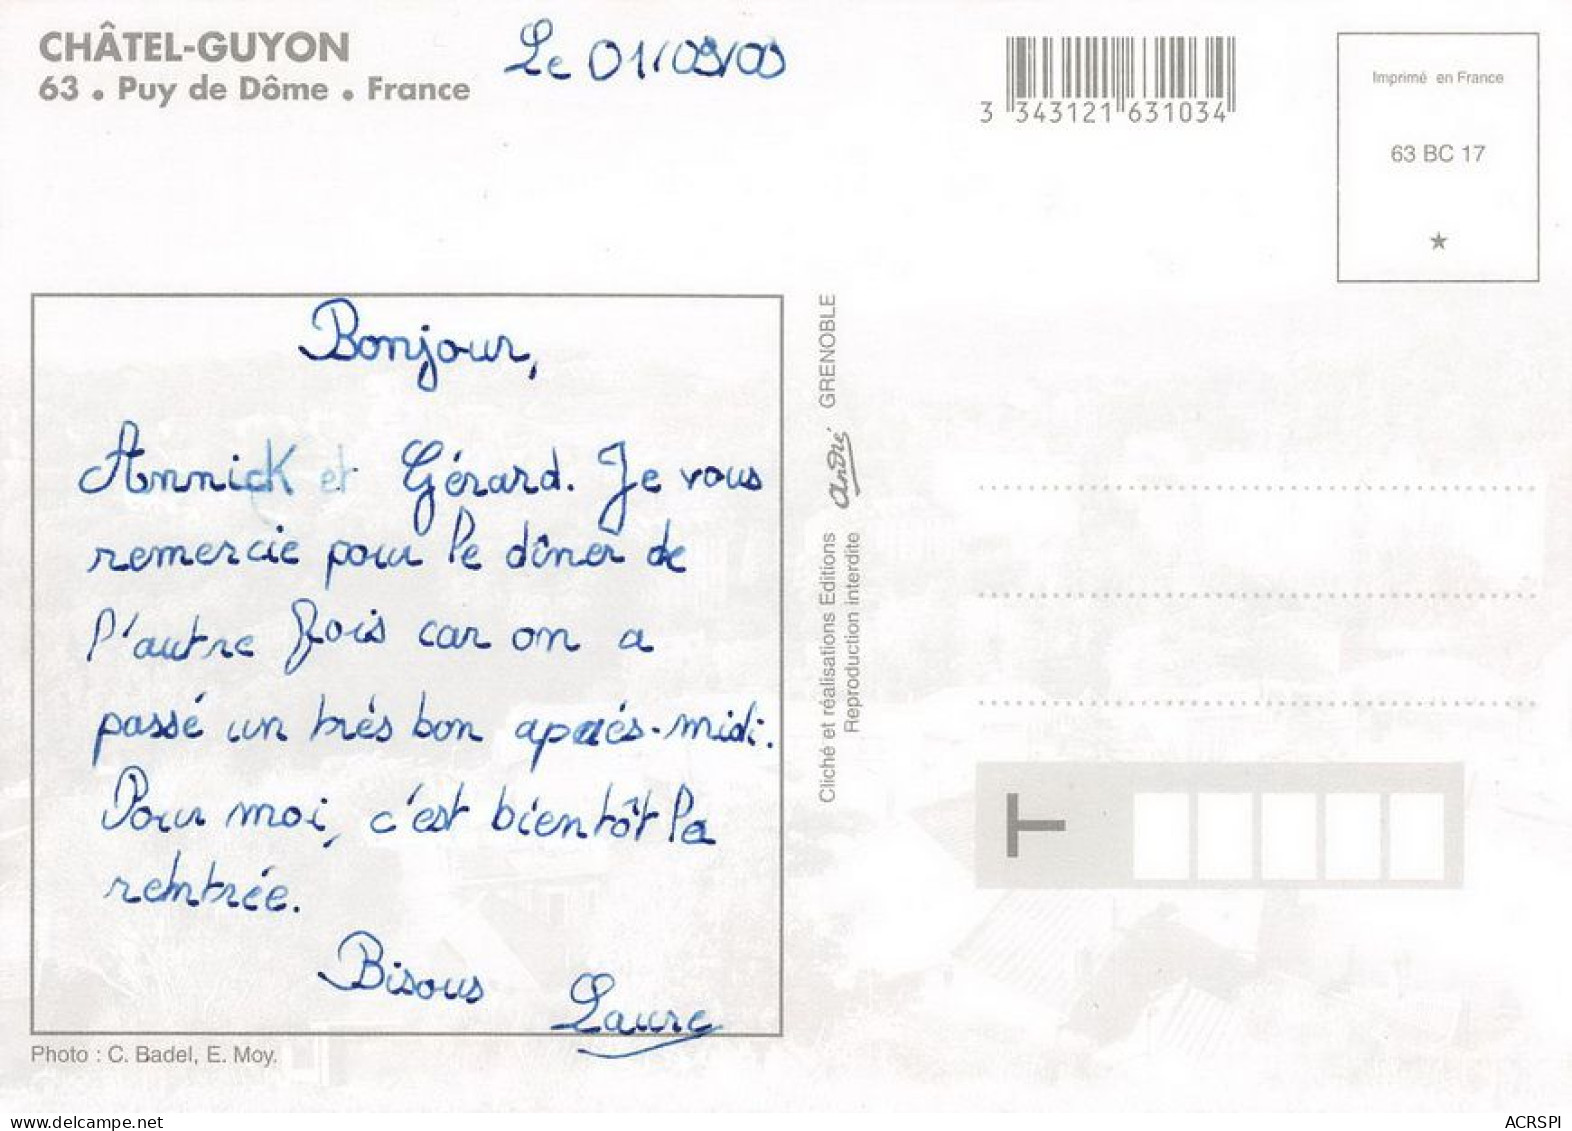 CHÂTEL-GUYON
63 . Puy de Dôme . France
Le 01/09/09
3 343121 631034
Imprimé en France
63 BC 17
Bonjour,
Annick et Gérard. Je vous
remercie pour le dîner de
l'autre fois car on a
passé un très bon après-midi.
Pour moi, c'est bientôt la
rentrée.
Bisous
Laure
Photo : C. Badel, E. Moy.
Cliché et réalisations Editions André GRENOBLE
Reproduction interdite
ACRSPI